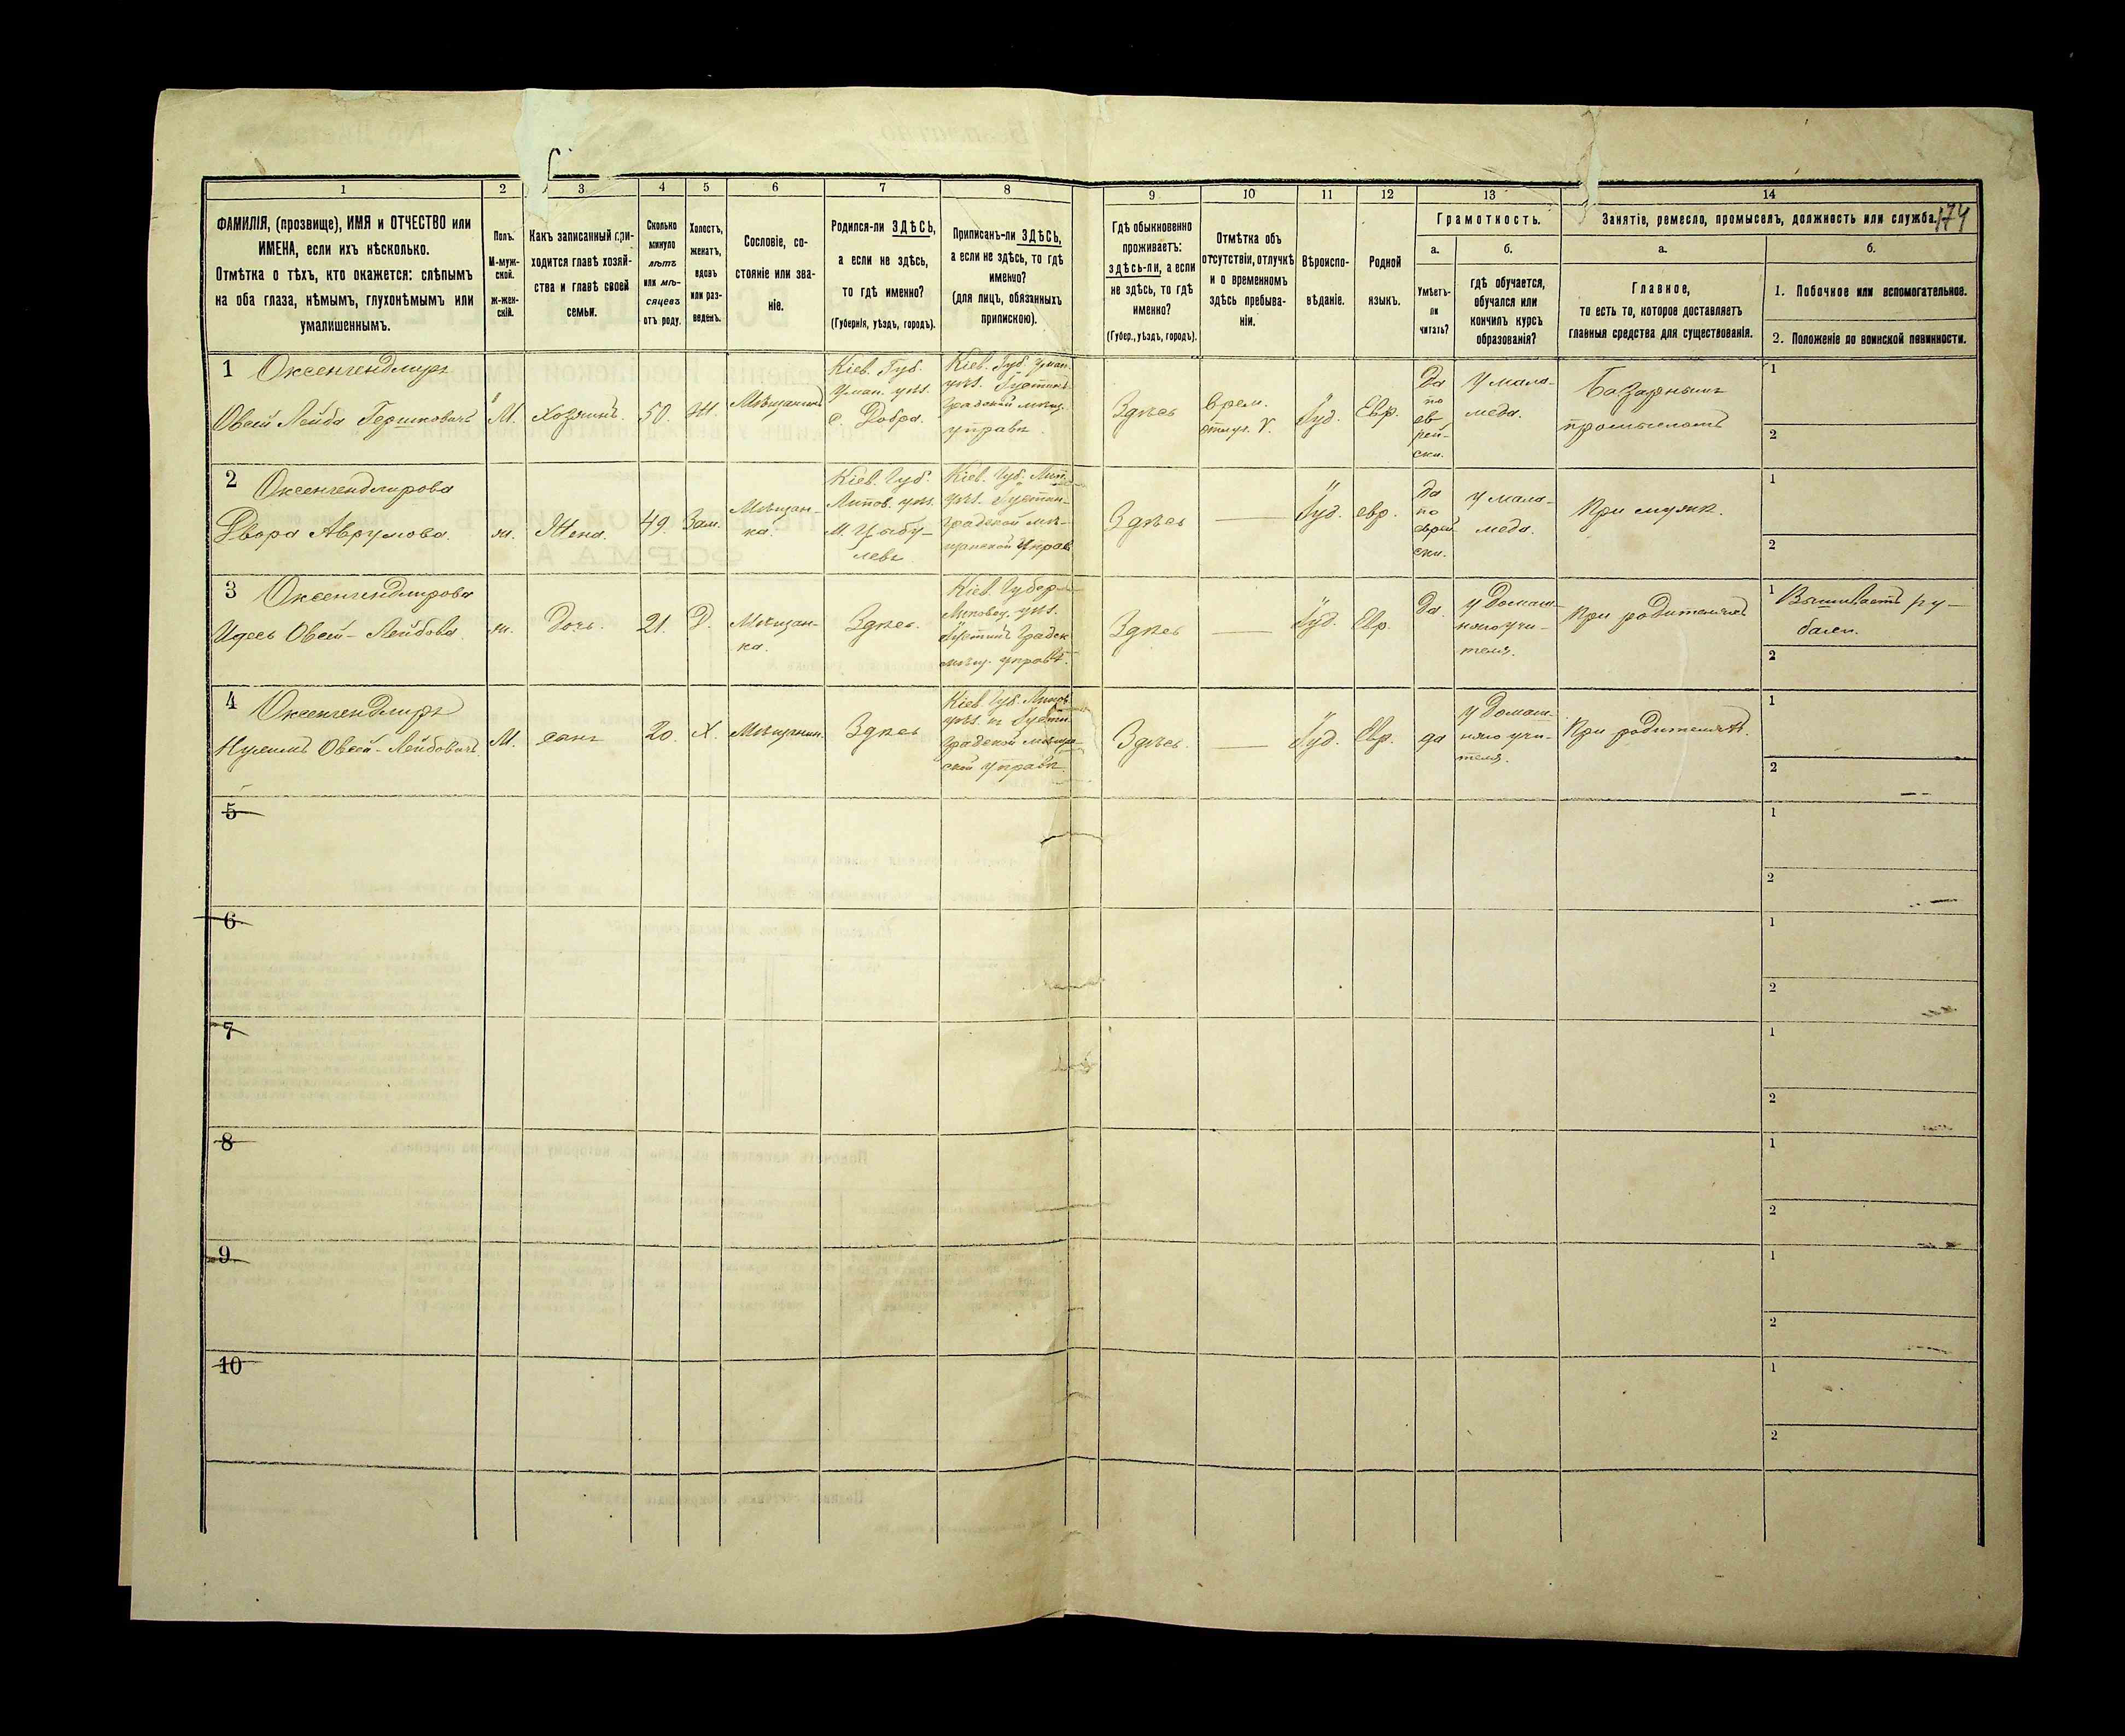 1 2 3 4 5 6 7 8 9 10 11 12 13 14
174
ФАМИЛІЯ, (прозвище), ИМЯ и ОТЧЕСТВО или
ИМЕНА, если ихъ нѣсколько.
Отмѣтка о тѣхъ, кто окажется: слѣпымъ
на оба глаза, нѣмымъ, глухонѣмымъ или
умалишеннымъ.
Полъ.
М-муж-
ской.
ж-жен-
скій.
Какъ записанный при-
ходится главѣ хозяй-
ства и главѣ своей
семьи.
Сколько
минуло
лѣтъ
или мѣ-
сяцевъ
отъ роду.
Холостъ,
женатъ,
вдовъ
или раз-
веденъ.
Сословіе, со-
стояніе или зва-
ніе.
Родился-ли ЗДѢСЬ,
а если не здѣсь,
то гдѣ именно?
(Губернія, уѣздъ, городъ).
Приписанъ-ли ЗДѢСЬ,
а если не здѣсь, то гдѣ
именно?
(для лицъ, обязанныхъ
припискою).
Гдѣ обыкновенно
проживаетъ:
здѣсь-ли, а если
не здѣсь, то гдѣ
именно?
(Губер., уѣздъ, городъ).
Отмѣтка объ
отсутствіи, отлучкѣ
и о временномъ
здѣсь пребыва-
ніи.
Вѣроиспо-
вѣданіе.
Родной
языкъ.
Грамотность.
а.
Умѣетъ-
ли
читать?
б.
гдѣ обучается,
обучался или
кончилъ курсъ
образованія?
Занятіе, ремесло, промыселъ, должность или служба.
а.
Главное,
то есть то, которое доставляетъ
главныя средства для существованія.
б.
1. Побочное или вспомогательное.
2. Положеніе по воинской повинности.
1 Оксенгендлиръ
Овсей Лейба Гершковичъ
М.
Хозяинъ.
50.
Ж.
Мѣщанинъ
Кіев. Губ.
Уман. уѣз.
с. Добра.
Кіев. Губ. Уман.
уѣз.
градской мѣщ.
управѣ.
Здѣсь
врем.
Іуд.
Евр.
Да
по
ев-
рей-
ски.
у мала-
меда.
Базарнымъ
промысломъ
1
2
2 Оксенгендлирова
Двора Аврумова.
ж.
Жена.
49.
Зам.
Мѣщан-
ка.
Кіев. Губ.
Липов. уѣз.
М. Цыбу-
левъ
Кіев. Губ. Лип.
уѣз.
градской мѣ-
щанской Управ.
Здѣсь
Іуд.
евр.
Да
по
еврей-
ски.
у мала-
меда.
При мужѣ.
1
2
3 Оксенгендлирова
Идесь Овсей-Лейбова
ж.
Дочь.
21.
Д.
Мѣщан-
ка.
Здѣсь.
Кіев. Губер-
Липовец. уѣз.
Градск.
мѣщ. управѣ.
Здѣсь
Іуд.
Евр.
Да.
у Домаш-
няго учи-
теля.
При родителяхъ
1 Вышиваетъ ру-
башки.
2
4 Оксенгендлиръ
Овсей-Лейбовичъ
М.
сынъ
20.
Х.
Мѣщанин.
Здѣсь
Кіев. Губ. Липов.
уѣз.
градской мѣщан-
ской управѣ.
Здѣсь.
Іуд.
Евр.
да
у Домаш-
няго учи-
теля.
При родителяхъ.
1
2
5
1
2
6
1
2
7
1
2
8
1
2
9
1
2
10
1
2